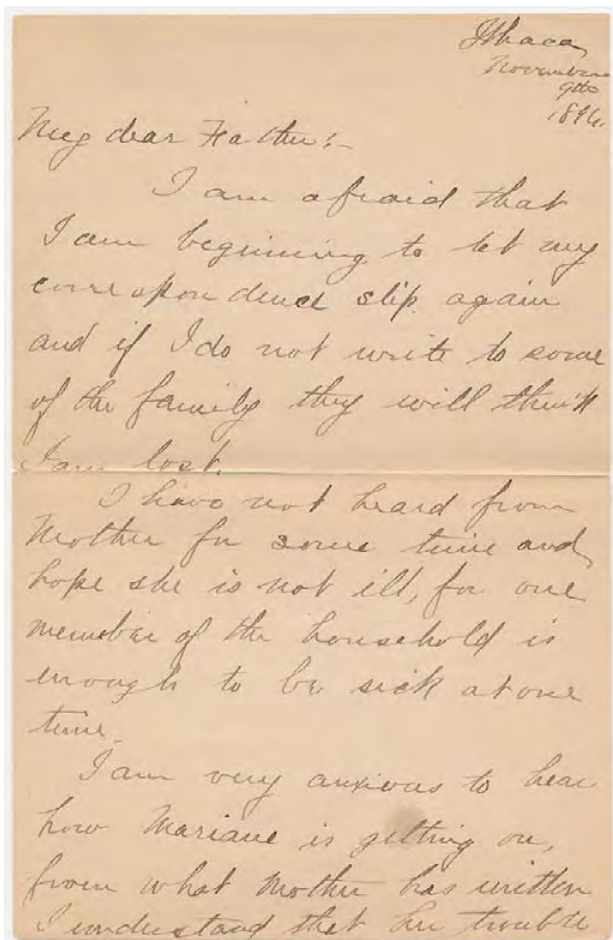 Ithaca,
November
9th
1896.
My dear Father:-
I am afraid that
I am beginning to let my
correspondence slip again
and if I do not write to some
of the family they will think
I am lost.
I have not heard from
Mother for some time and
hope she is not ill, for one
member of the household is
enough to be sick at one
time.
I am very anxious to hear
how Mariane is getting on,
from what Mother has written
I understand that her trouble